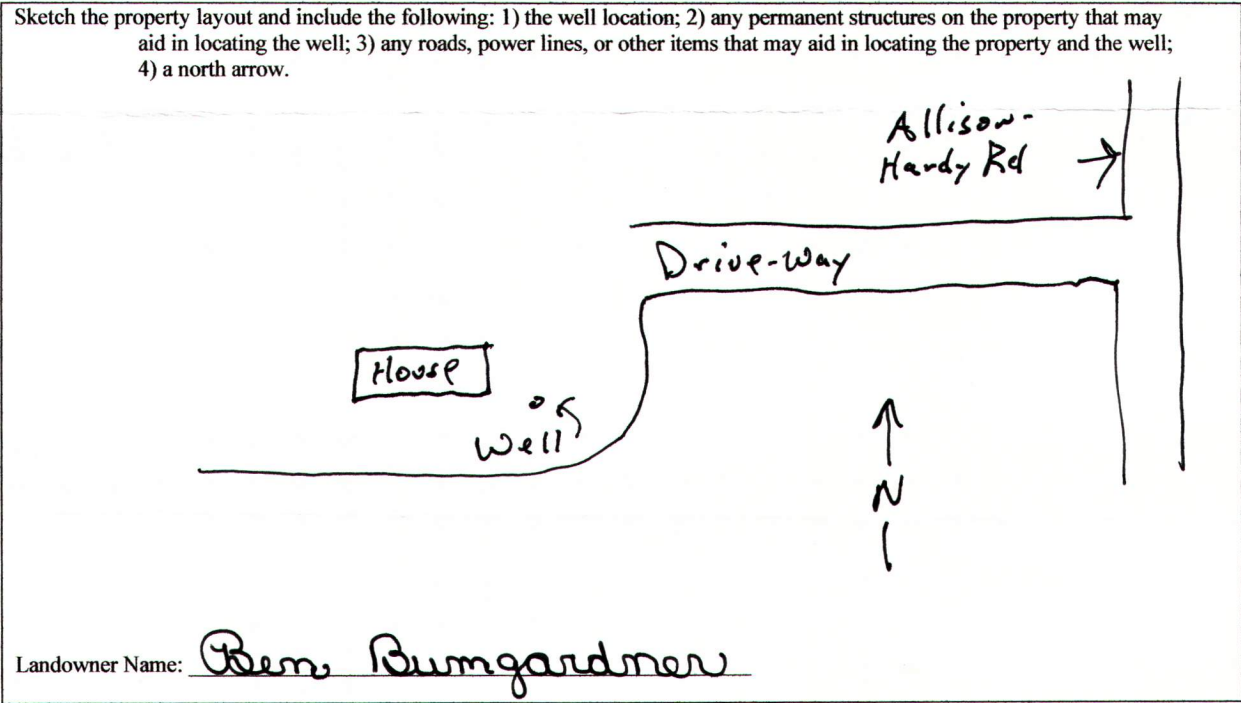 Sketch the property layout and include the following: 1) the well location; 2) any permanent structures on the property that may
aid in locating the well; 3) any roads, power lines, or other items that may aid in locating the property and the well;
4) a north arrow.
Allison-
Hardy Rd
Drive-way
House
Well
N
Landowner Name: Ben Bumgardner